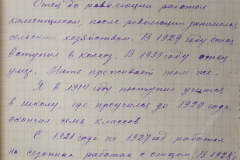 Отец до революции работал
каменщиком, после революции занимался
сельским хозяйством. В 1929 году отец
вступил в колхоз. В 1933 году отец
умер. Мать проживает там же.
Я в 1911 году поступил учиться
в школу, где проучился до 1920 года,
окончил семь классов
С 1921 года по 1927 год работал
на сезонных работах с отцом. В 1928